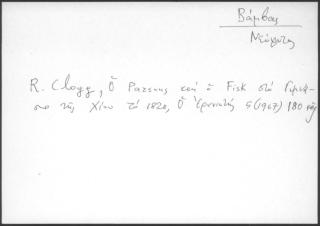 Βάμβας
Νεόφυτος
R. Clogg, Ὁ Parsons καί ὁ Fisk στό Γυμνά-
σιο τῆς Χίου τό 1820, Ὁ Ἐρανιστής 5 (1967) 180 κἑ